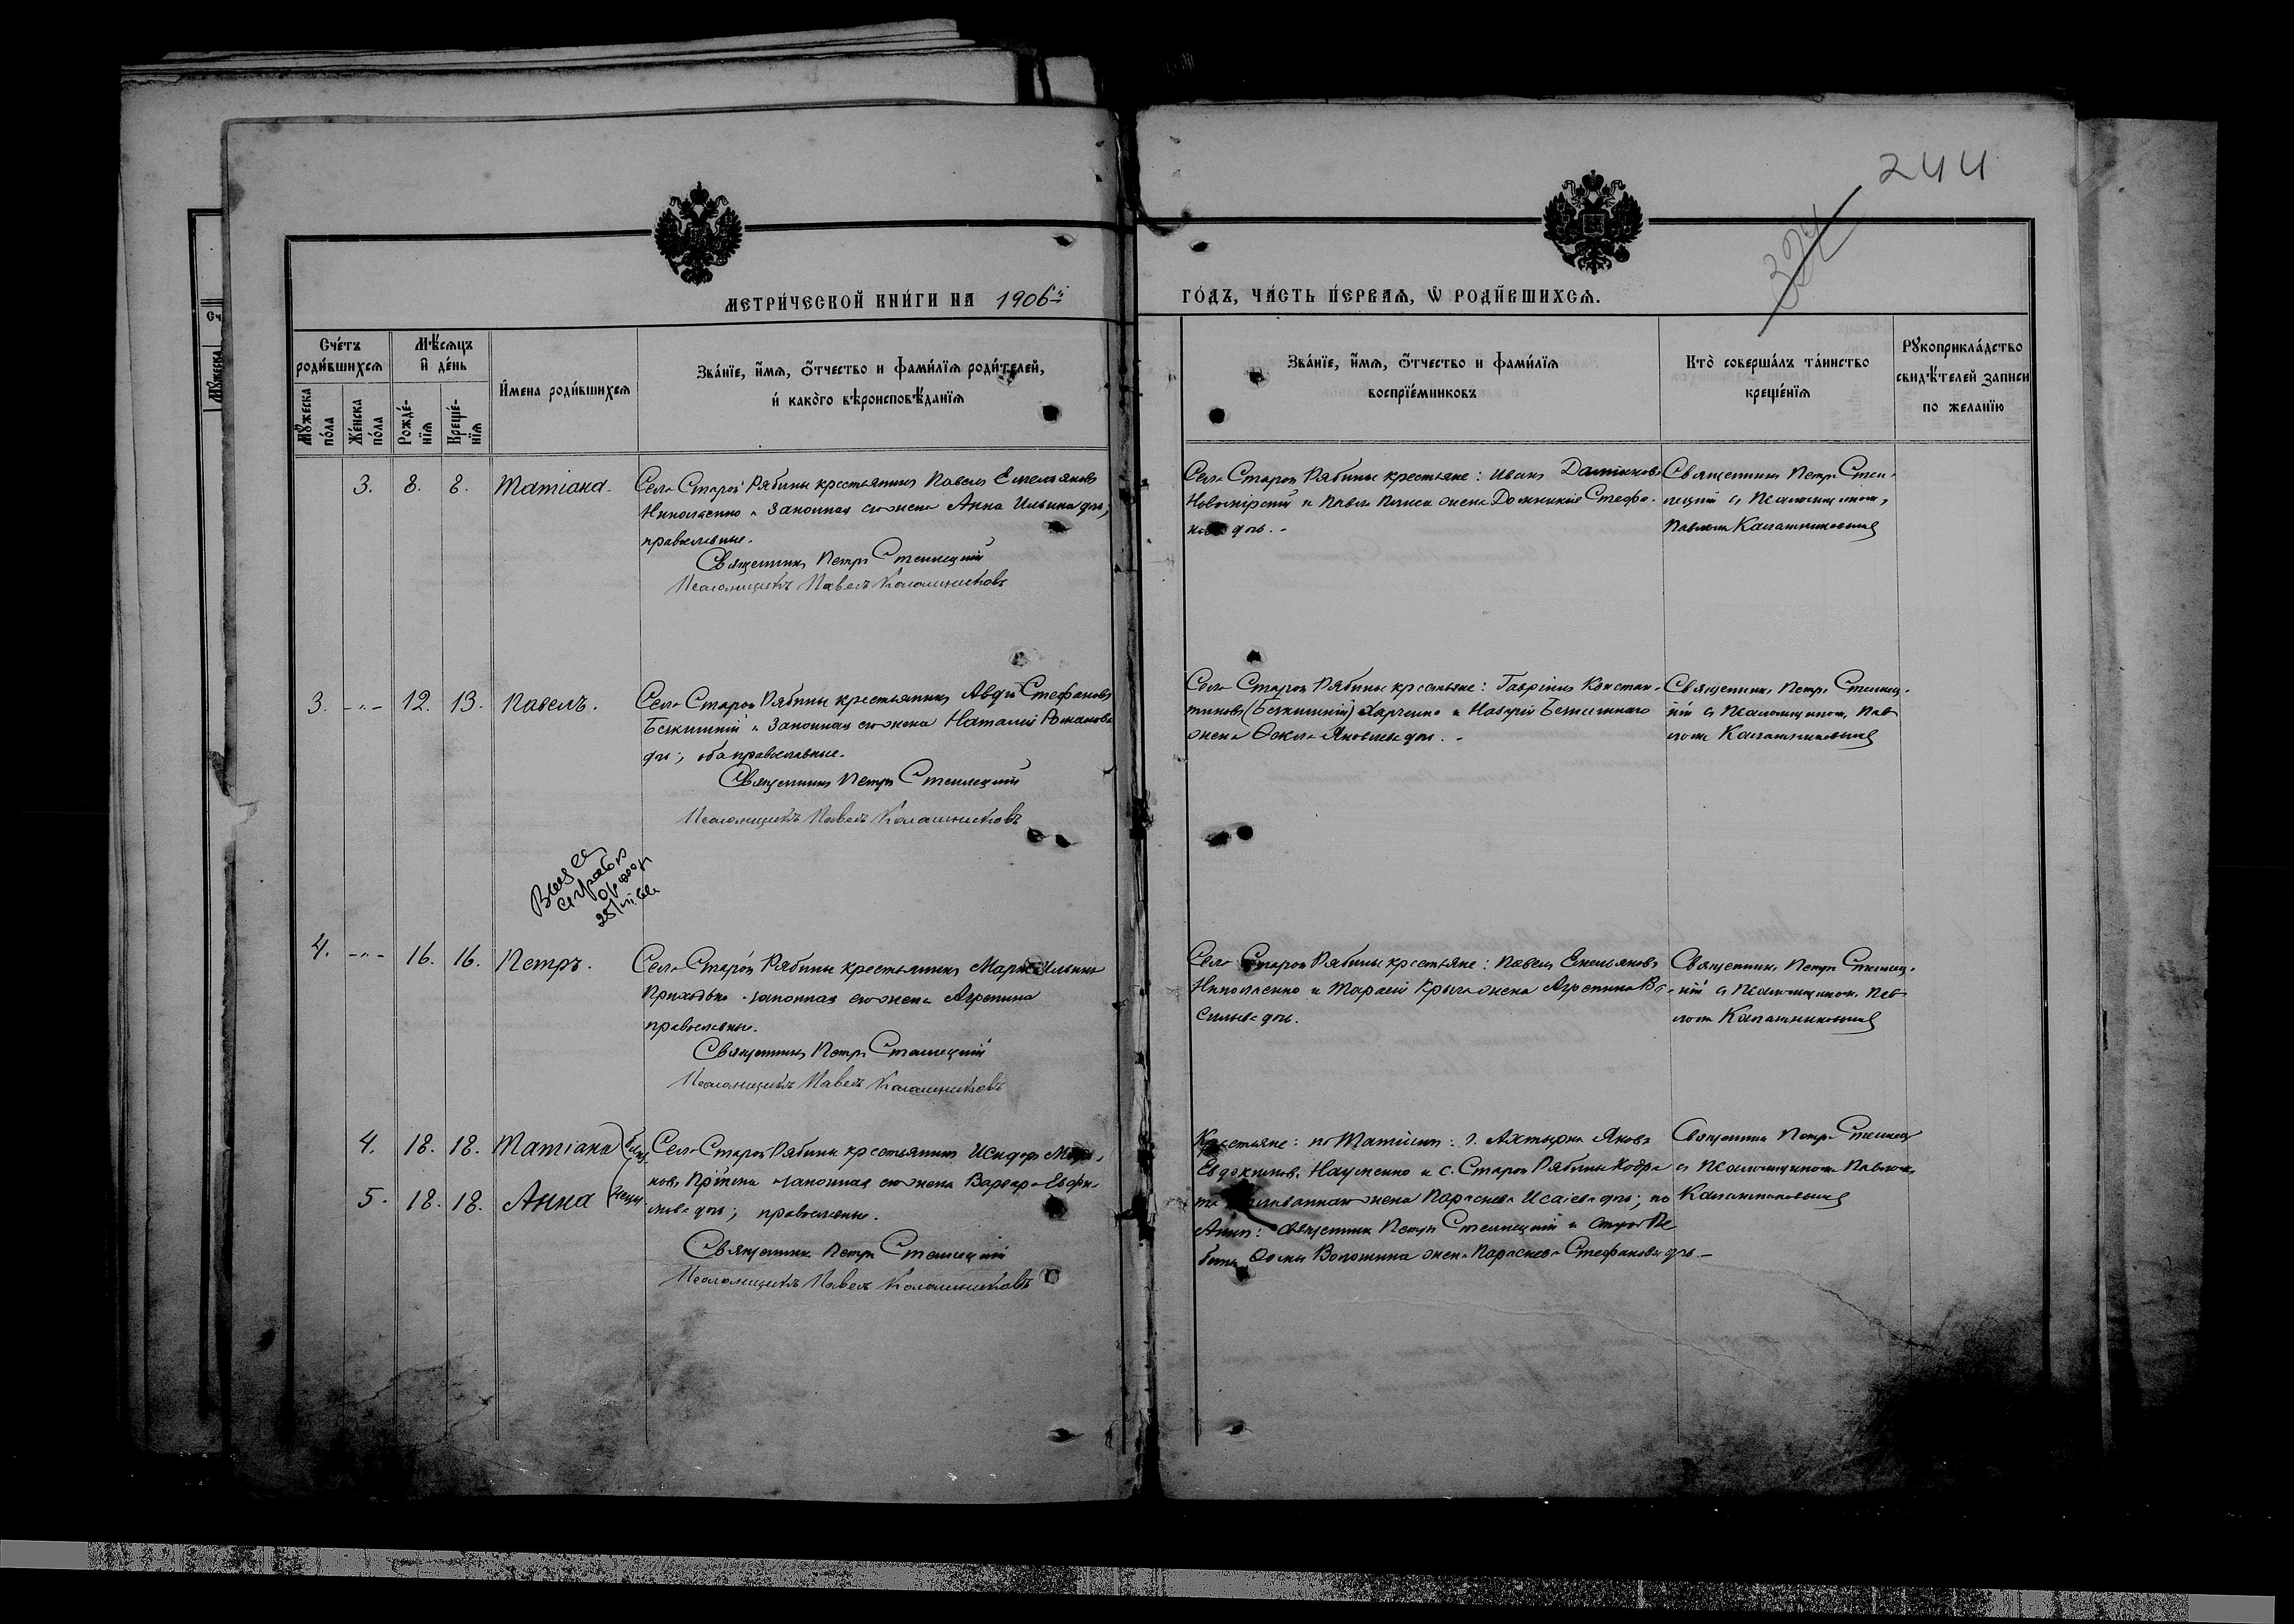 244
324
МЕТРИЧЕСКОЙ КНИГИ НА 1906й
ГОДЪ, ЧАСТЬ ПЕРВАЯ, Ѡ РОДИВШИХСЯ.
Счетъ родившихся
Мужеска пола
Женска пола
Мѣсяцъ и день
Рожденія
Крещенія
Имена родившихся
Званіе, имя, отчество и фамилія родителей,
и какого вѣроисповѣданія
Званіе, имя, отчество и фамилія
воспріемниковъ
Кто совершалъ таинство
крещенія
Рукоприкладство
свидѣтелей записи
по желанію
3. 8. 8. Татіана.
Села Старой Рябины крестьянинъ Павелъ Емельяновъ
Николаенко и законная его жена Анна Ильина дчь,
православные.
Священникъ Петръ Стеллецкій
Псаломщикъ Павелъ Калашниковъ
Села Старой Рябины крестьяне: Иванъ
и Павла жена Стефа-
нова дчь.
Священникъ Петръ Стел-
лецкій съ псаломщикомъ
Павломъ Калашниковымъ
3. -"- 12. 13. Павелъ.
Села Старой Рябины крестьянинъ Авдій Стефановъ
и законная его жена Наталія Романова
дчь; оба православные.
Священникъ Петръ Стеллецкій
Псаломщикъ Павелъ Калашниковъ
Села Старой Рябины крестьяне: Гавріилъ Констан-
тиновъ Харченко и
жена Ѳекла Яковлева дчь.
Священникъ Петръ Стеллец-
кій съ псаломщикомъ Пав-
ломъ Калашниковымъ
4. -"- 16. 16. Петръ.
Села Старой Рябины крестьянинъ Ильинъ
Приходько и законная его жена Агрепина
православные.
Священникъ Петръ Стеллецкій
Псаломщикъ Павелъ Калашниковъ
Села Старой Рябины крестьяне: Павелъ Емельяновъ
Николаенко и Тарасія жена Агрепина Ва-
сильева дчь.
Священникъ Петръ Стеллец-
кій съ псаломщикомъ Пав-
ломъ Калашниковымъ
4. 18. 18. Татіана
5. 18. 18. Анна
Села Старой Рябины крестьянинъ Исидоръ
и законная его жена Варвара
дчь; православные.
Священникъ Петръ Стеллецкій
Псаломщикъ Павелъ Калашниковъ
Крестьяне: по Татіанѣ: г. Ахтырки Яковъ
Евдокимовъ Науменко и с. Старой Рябины
жена Параскева Исаіева дчь; по
Аннѣ: священникъ Петръ Стеллецкій и
жена Параскева Стефанова дчь.
Священникъ Петръ Стеллец
съ псаломщикомъ Павломъ
Калашниковымъ